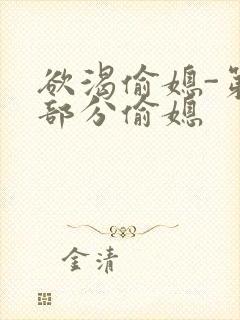 欲渴偷媳-第
部分偷媳
金清